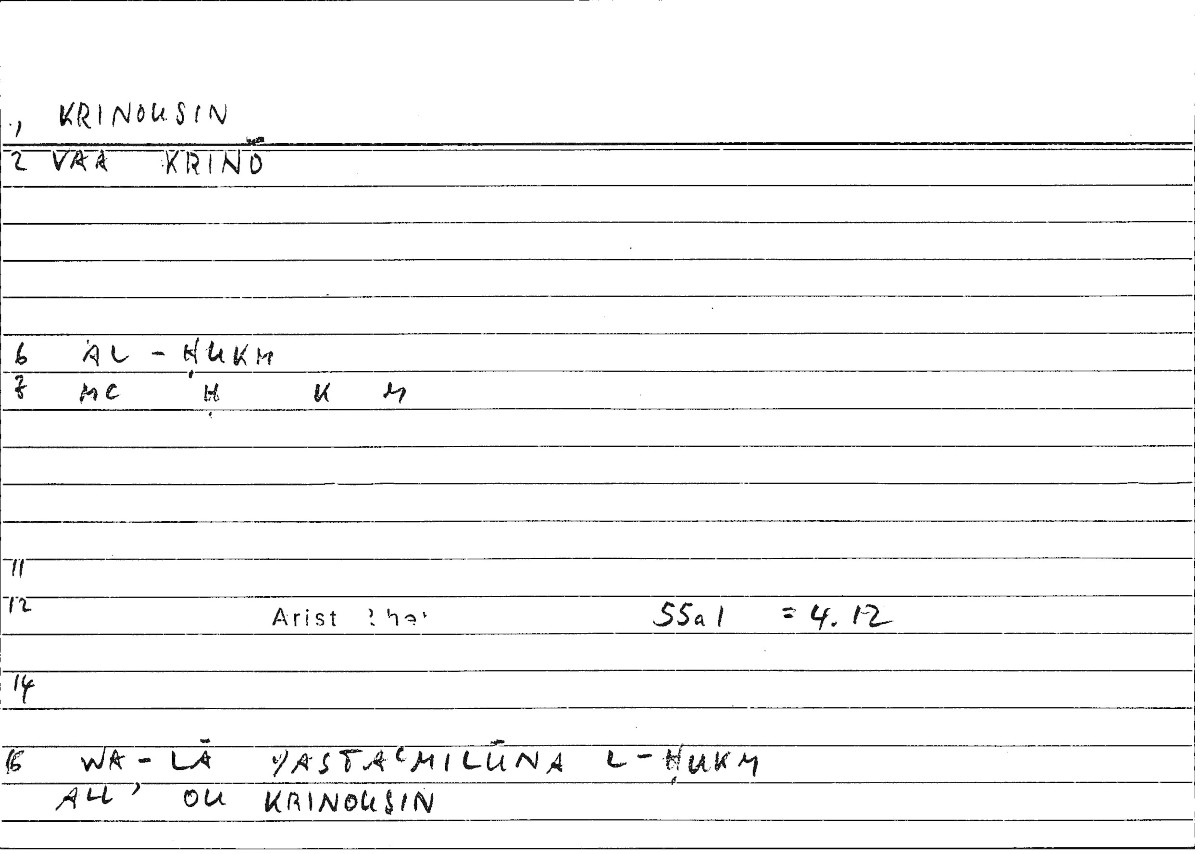 ., KRINOUSIN
2 VAA KRINŌ
6 AL - ḤUKM
7 MC Ḥ K M
11
12 Arist Rhet 55a1 = 4.12
14
16 WA - LĀ YASTAʿMILŪNA L - ḤUKM
ALL' OU KRINOUSIN